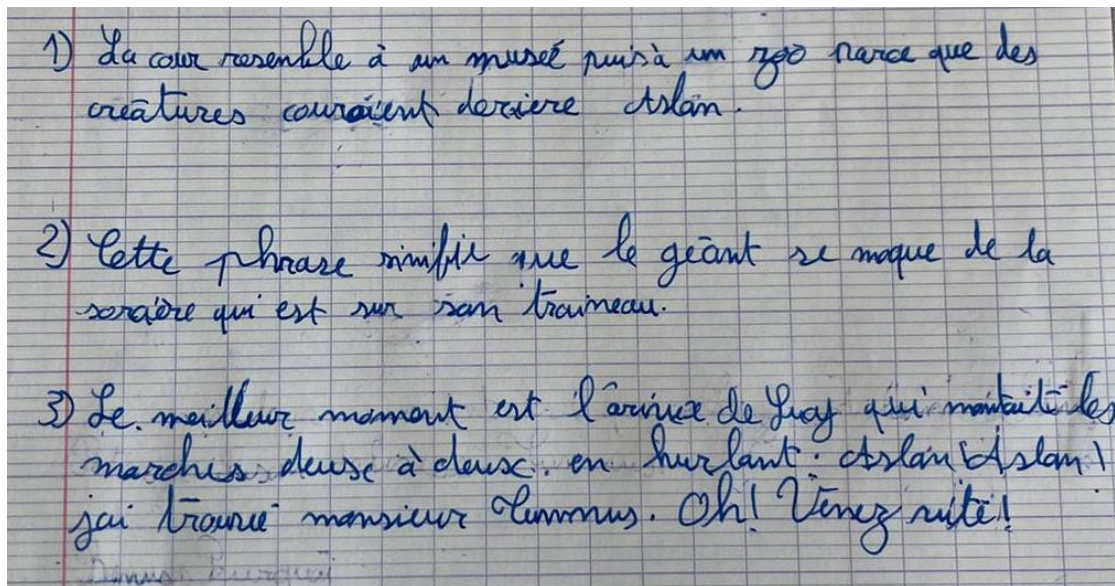 1) La cour resenble à un museé puis à un zoo parce que des
creātures couraient deriere Aslan.
2) Cette phrase sinifie que le geānt se moque de la
sorcière qui est sur son traineau.
3) Le meilleur moment est l'arivée de Lucy qui montait les
marches deux à deux. en hurlant: Aslan! Aslan!
jai trouvé monsieur Tumnus. Oh! Venez vite!